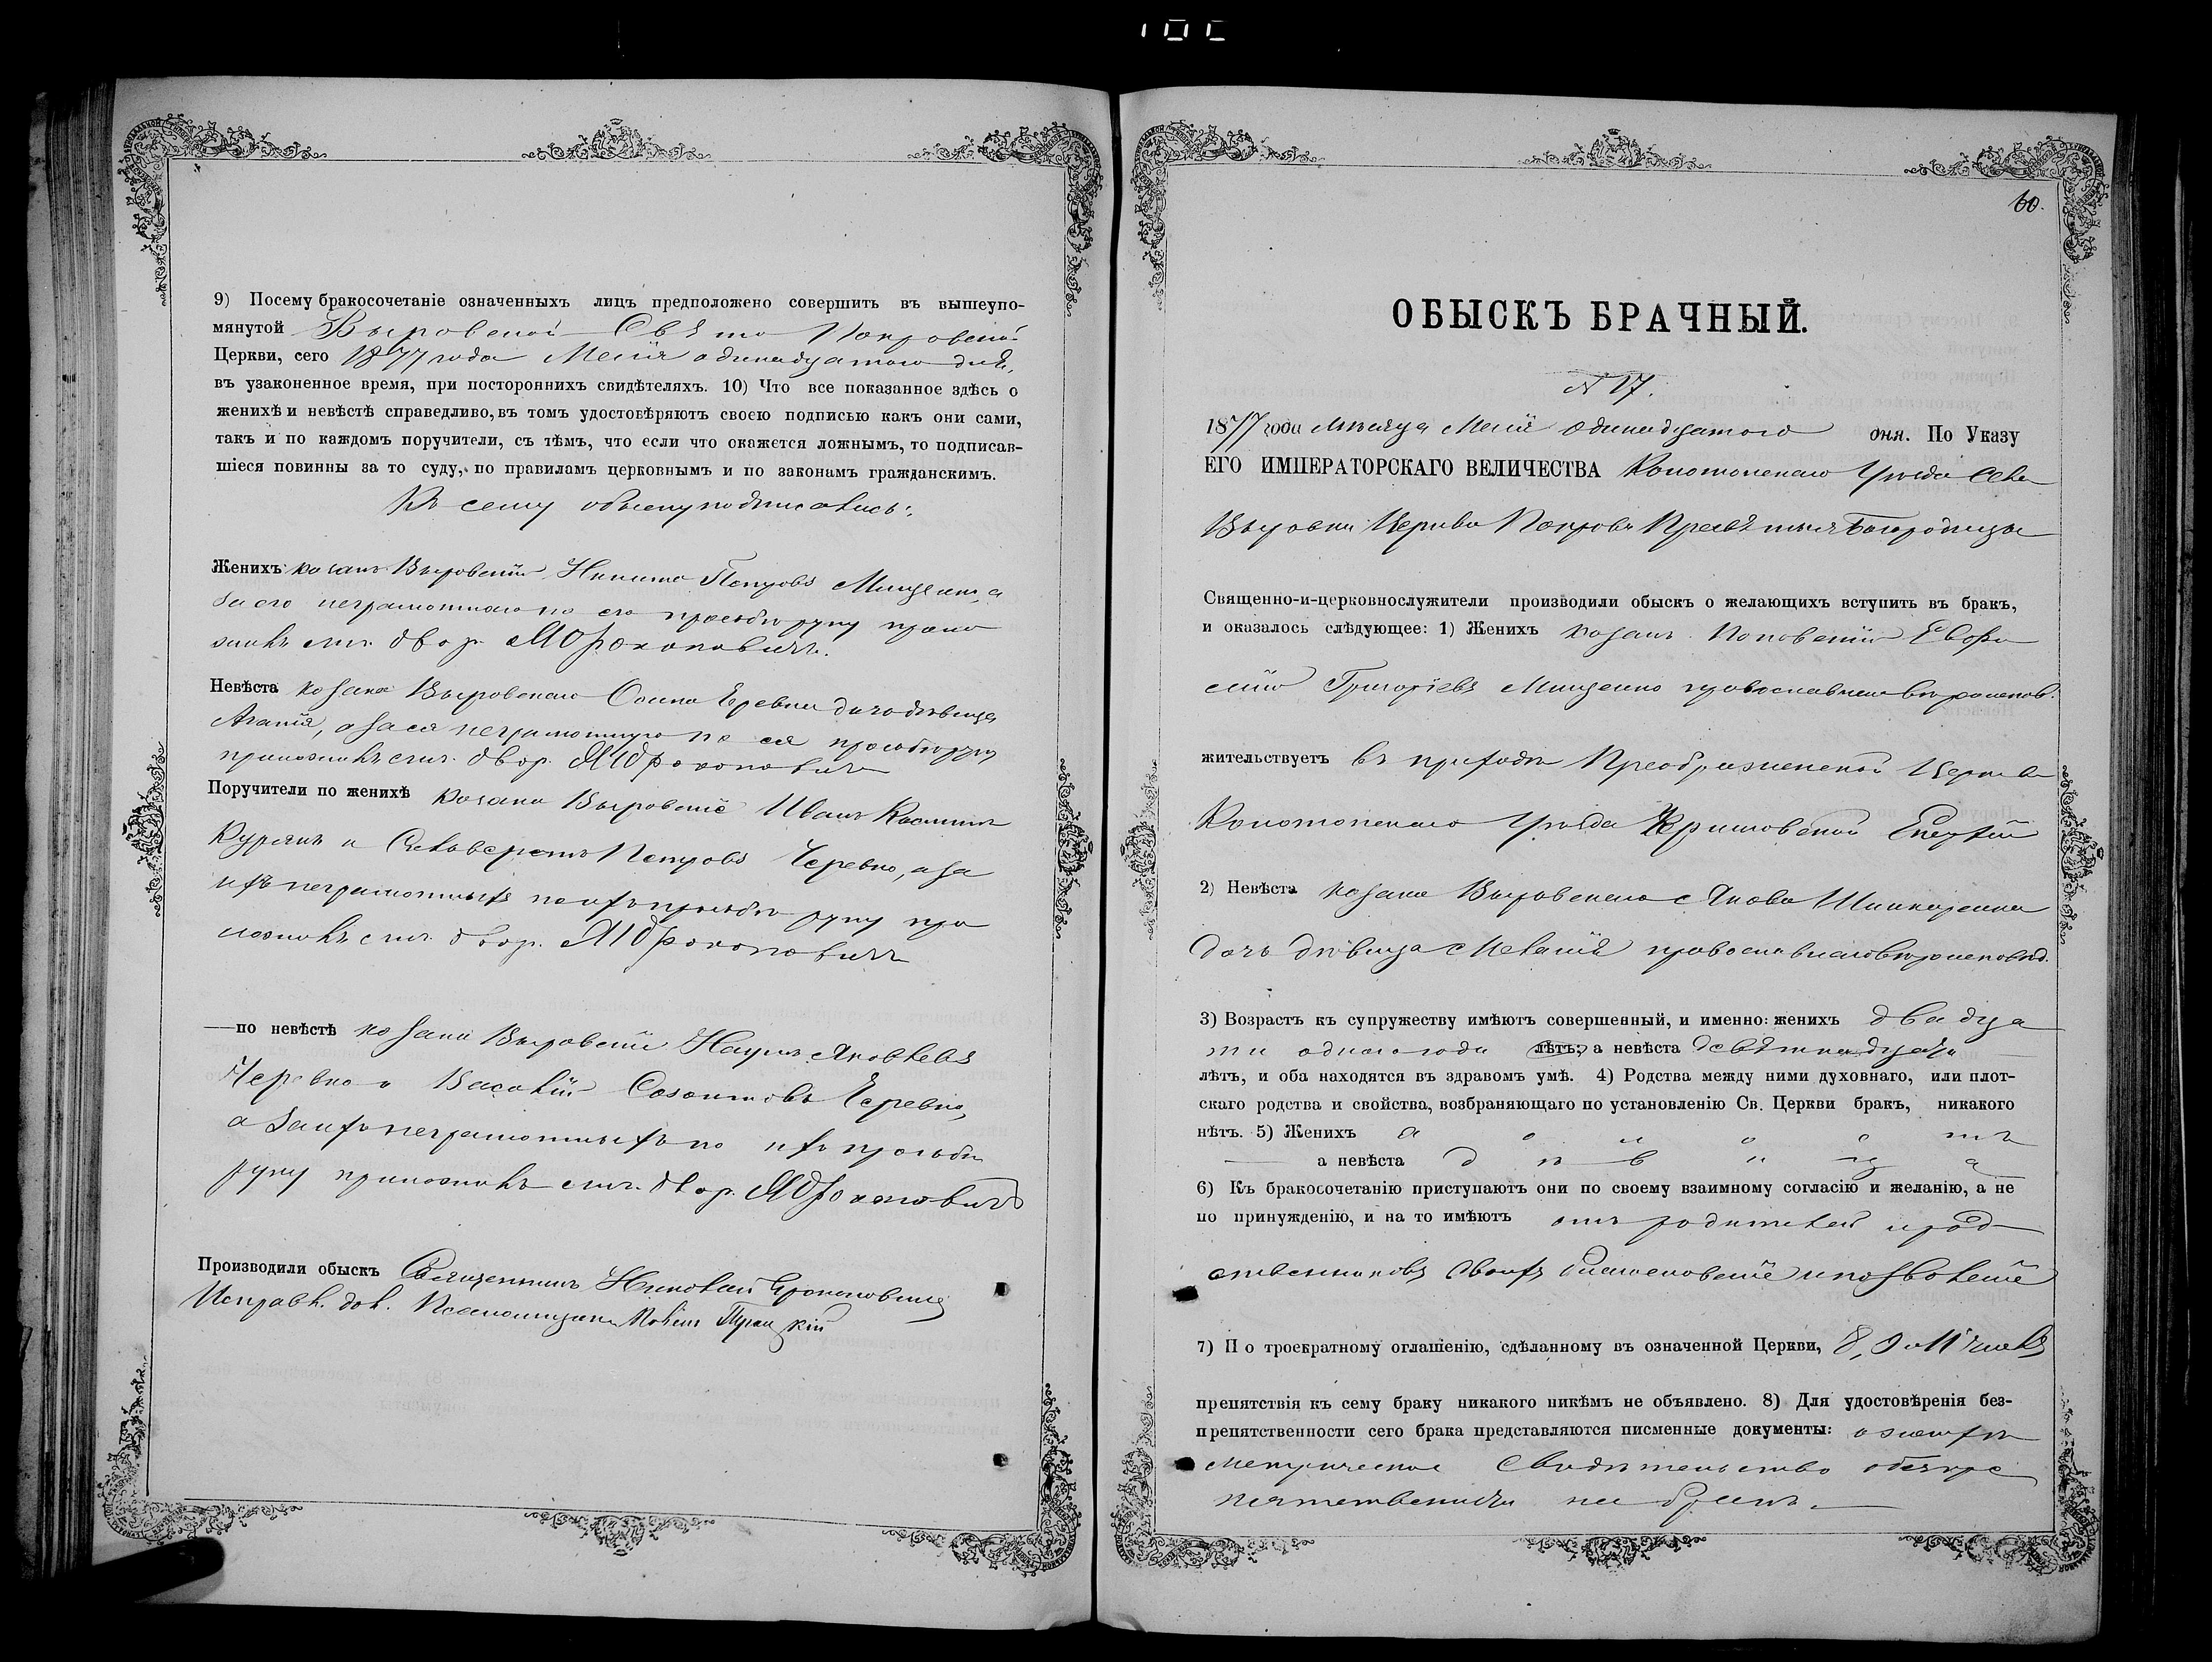 9) Посему бракосочетаніе означенныхъ лицъ предположено совершить въ вышеупо-
мянутой Выровской Свято Покровской
Церкви, сего 1877 года Маія одинадцатого дня,
въ узаконенное время, при постороннихъ свидѣтеляхъ. 10) Что все показанное здѣсь о
женихѣ и невѣстѣ справедливо, въ томъ удостовѣряютъ своею подписью какъ они сами,
такъ и по каждомъ поручители, съ тѣмъ, что если что окажется ложнымъ, то подписав-
шіеся повинны за то суду, по правиламъ церковнымъ и по законамъ гражданскимъ.
Къ сему обыску подписались:
Женихъ козакъ Выровскій Никита Петровъ Мищенко, а
за его неграмотного по его прозьбѣ руку прило
жилъ
Невѣста козака Выровскаго Черевка дочь дѣвица
Агапія, а за ея неграмотную по ея прозьбѣ руку
приложилъ
Поручители по женихѣ козаки Выровскіе Иванъ
и Сильверстъ Петровъ Черевко, а за
ихъ неграмотныхъ по ихъ прозьбѣ руку при
ложилъ
—по невѣстѣ козаки Выровскіе Наумъ Яковлевъ
Черевко и Василій Созонтовъ Черевко,
а за ихъ неграмотныхъ по ихъ прозьбѣ
руку приложилъ
Производили обыскъ Священникъ Николай Ярошовицъ
Исправл. дол. Псаломщика Троицкій
60.
ОБЫСКЪ БРАЧНЫЙ.
№ 17.
1877 года мѣсяца Маія одинадцатого дня. По Указу
ЕГО ИМПЕРАТОРСКАГО ВЕЛИЧЕСТВА Конотопскаго Уѣзда села
Выровки Церкви Покрова Пресвятыя Богородицы
Священно-и-церковнослужители производили обыскъ о желающихъ вступить въ бракъ,
и оказалось слѣдующее: 1) Женихъ козакъ Поповскій
Григоріевъ Мищенко православнаго вѣроисповѣд.
жительствуетъ въ приходѣ Преображенской Церкви
Конотопскаго Уѣзда Черниговской Епархіи
2) Невѣста козака Выровскаго Якова Шинкаренка
дочь дѣвица Меланія православнаго вѣроисповѣд.
3) Возрастъ къ супружеству имѣютъ совершенный, и именно: женихъ двадца
ти одного года лѣтъ; а невѣста девятнадцати
лѣтъ, и оба находятся въ здравомъ умѣ. 4) Родства между ними духовнаго, или плот-
скаго родства и свойства, возбраняющаго по установленію Св. Церкви бракъ, никакого
нѣтъ. 5) Женихъ холостъ
а невѣста дѣвица
6) Къ бракосочетанію приступаютъ они по своему взаимному согласію и желанію, а не
по принужденію, и на то имѣютъ отъ родителей и род
ственниковъ своихъ благословеніе и позволеніе
7) По троекратному оглашенію, сдѣланному въ означенной Церкви, 8, 9 и 11 числъ
препятствія къ сему браку никакого никѣмъ не объявлено. 8) Для удостовѣренія без-
препятственности сего брака представляются писменные документы: о женихѣ
метрическое свидѣтельство о безпре
пятственности на бракъ.